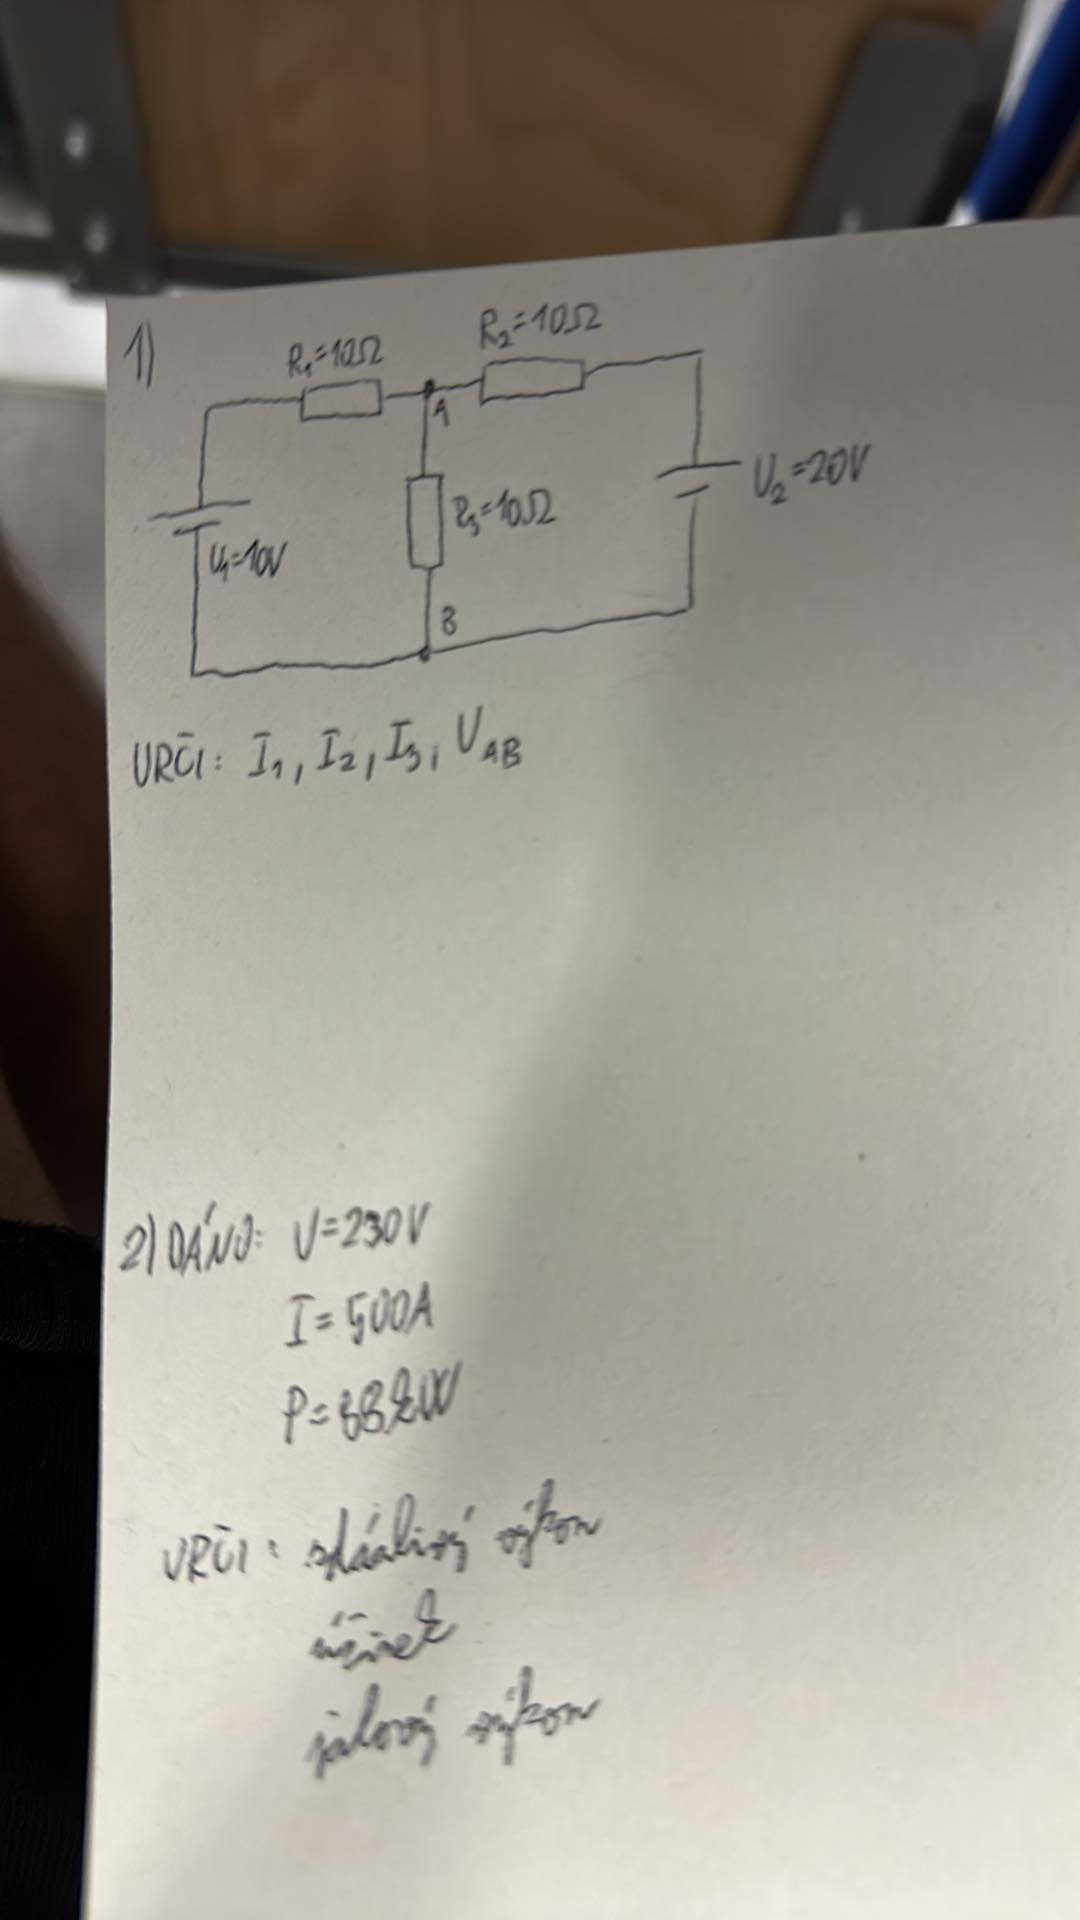 1)
R₁=10Ω
R₂=10Ω
A
R₃=10Ω
U₂=20V
U₁=10V
B
URČI: I₁, I₂, I₃, U_AB
2) DÁNO: U=230V
I=500A
P=88kW
URČI: zdánlivý výkon
účinek
jalový výkon